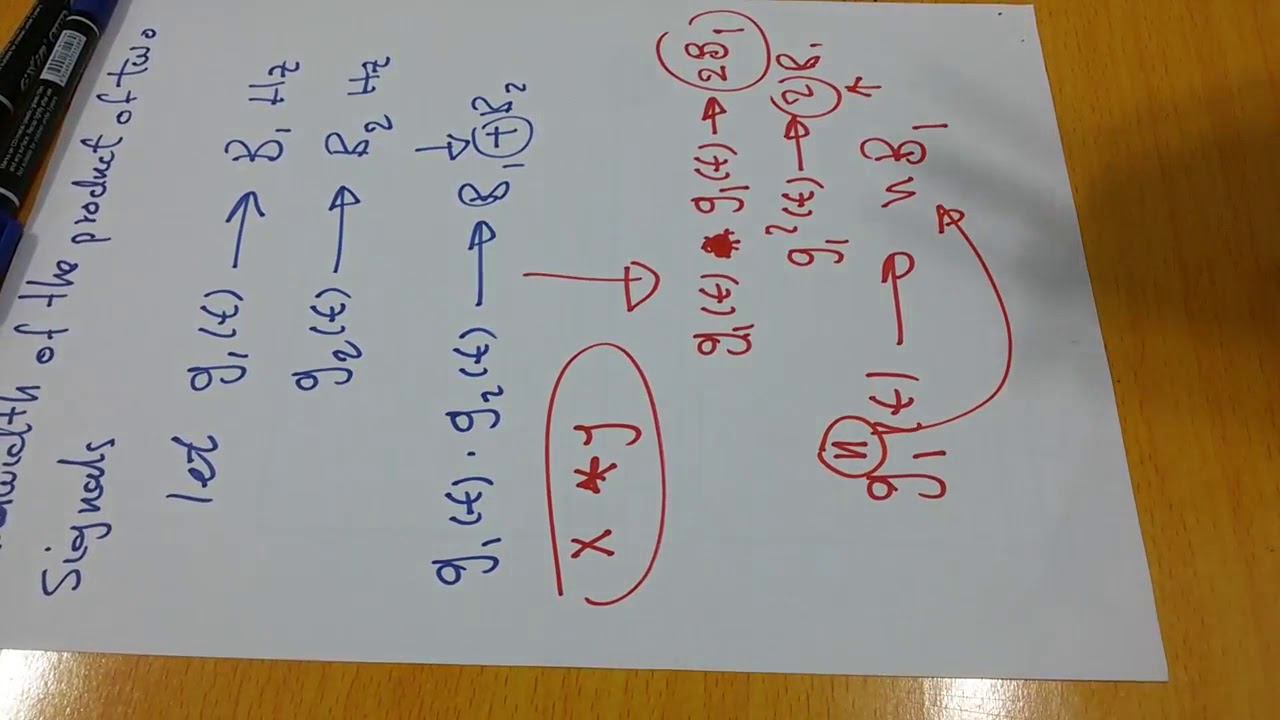 of the product of two
Signals
let g₁(t) → B₁ Hz
g₂(t) → B₂ Hz
g₁(t) · g₂(t) → B₁ + B₂
x * y
g₁(t) g₁(t) → 2B₁
g₁²(t) → 2B₁
g₁ⁿ(t) → nB₁